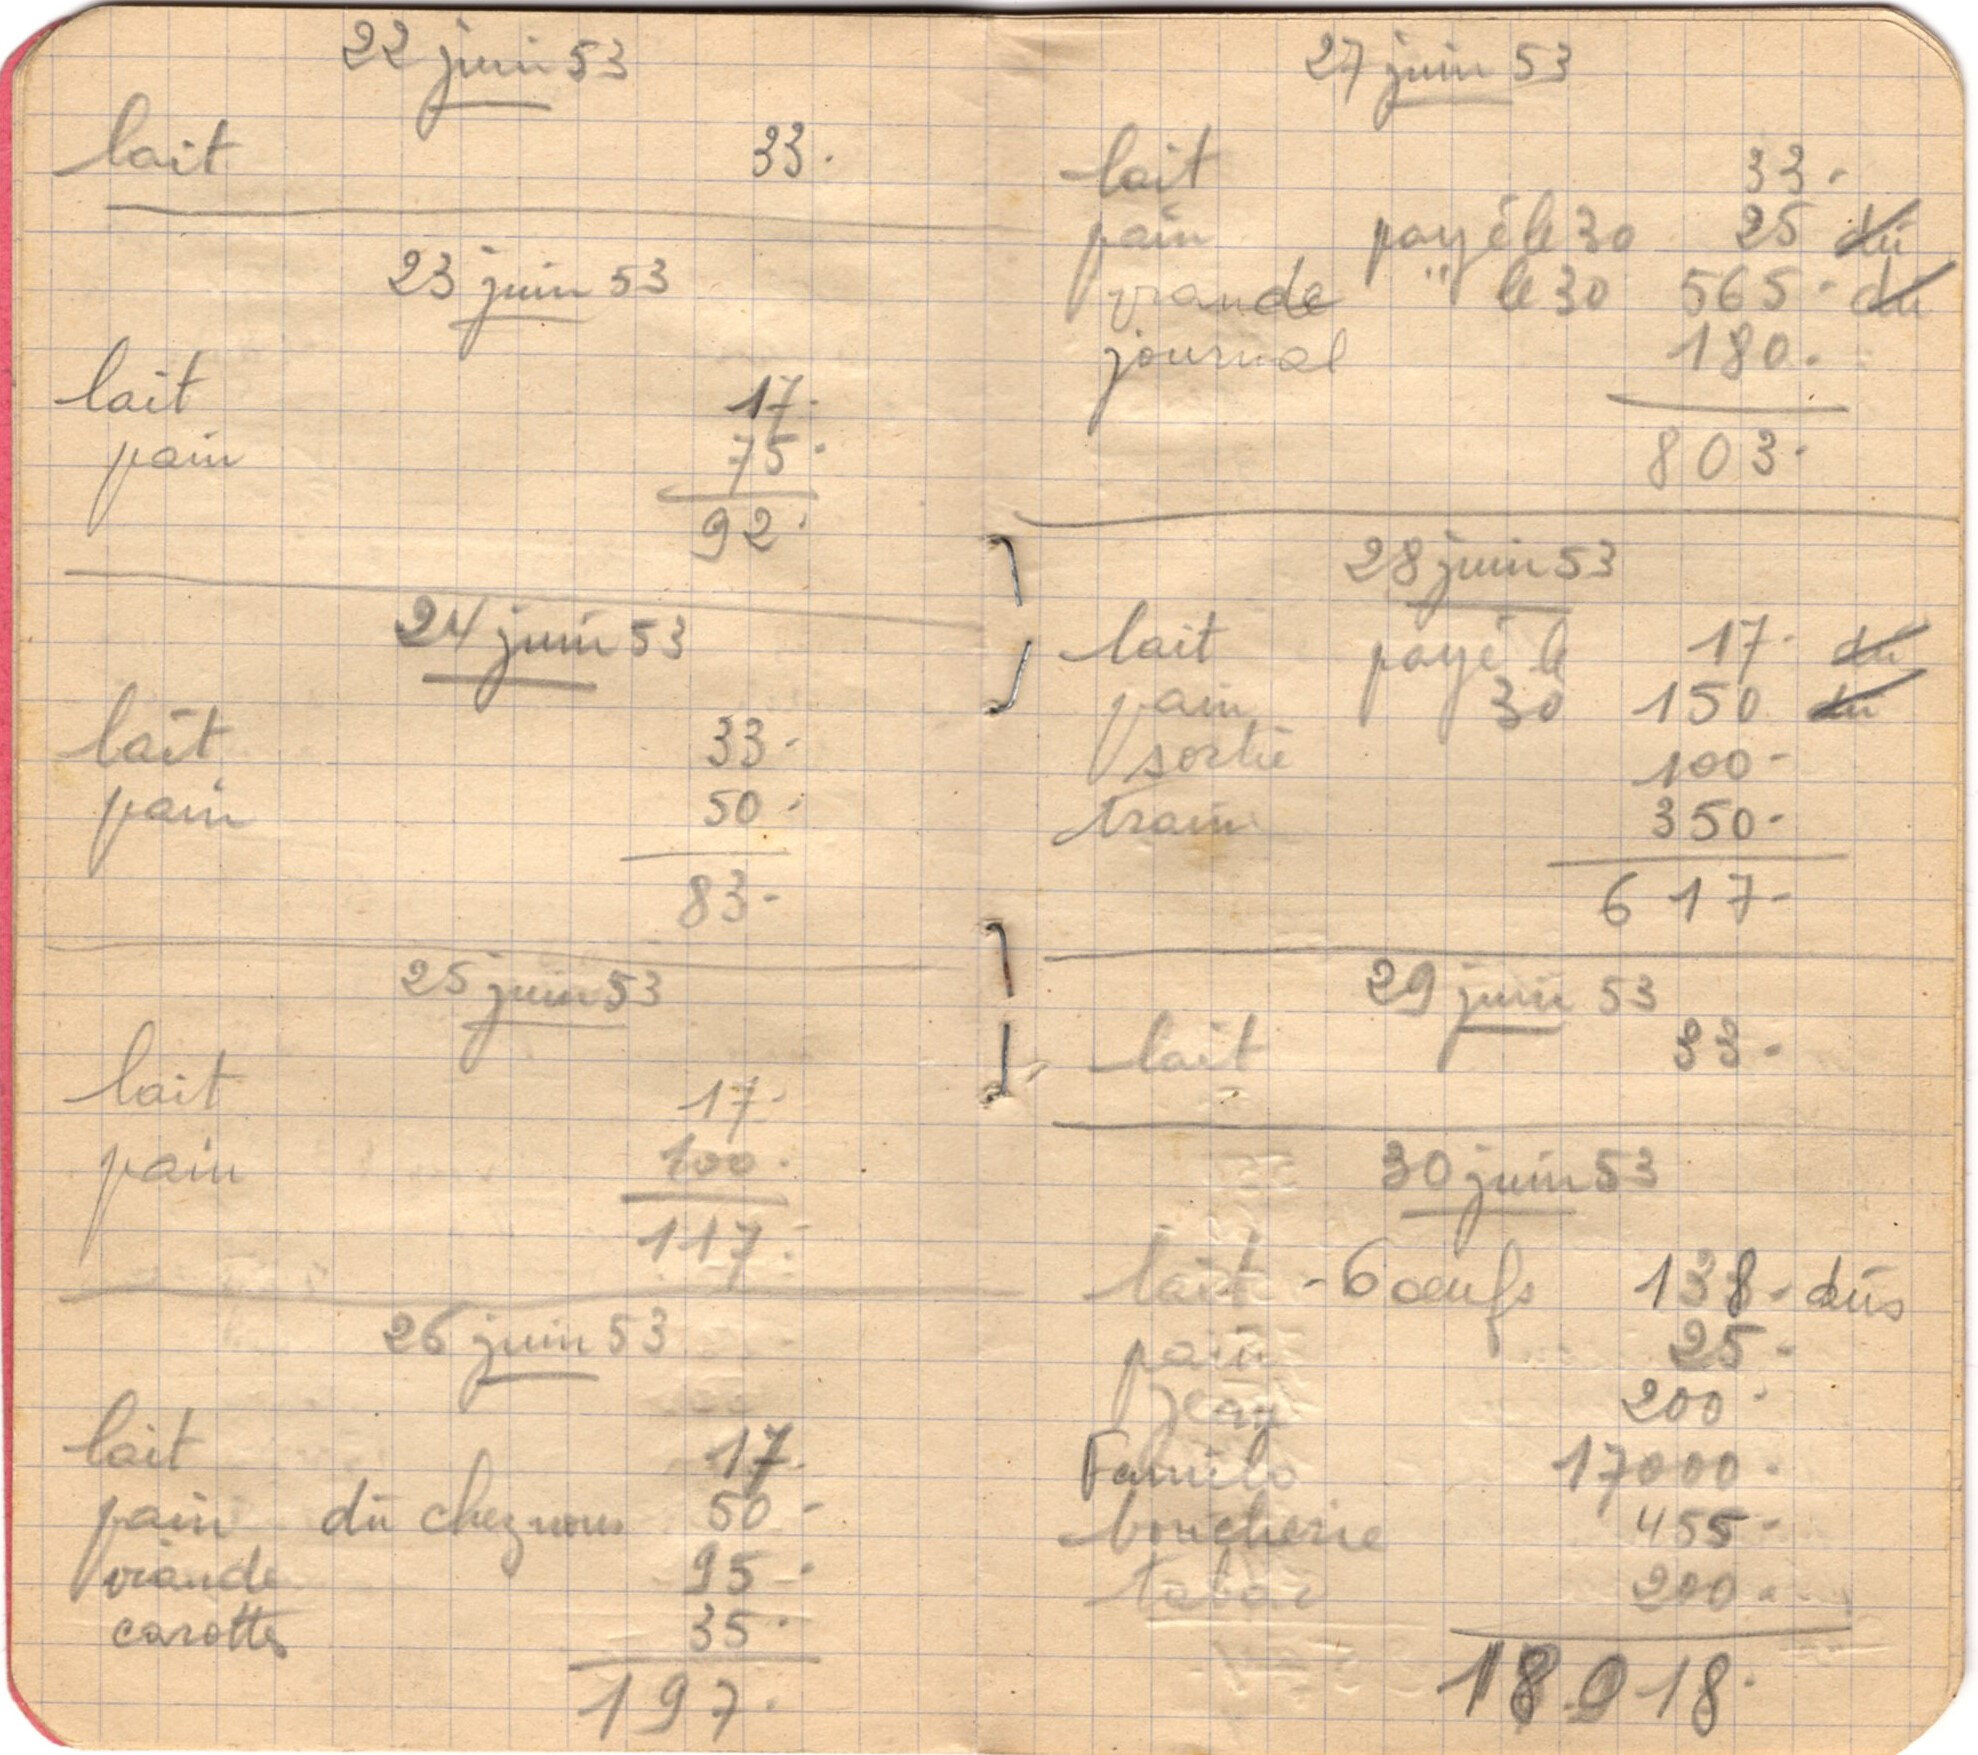 22 juin 53
lait 33.
23 juin 53
lait 17.
pain 75.
92.
24 juin 53
lait 33.
pain 50.
83.
25 juin 53
lait 17.
pain 100.
117.
26 juin 53
lait 17.
pain dû chez nous 50.
viande 95.
carottes 35.
197.
27 juin 53
lait 33.
pain payé le 30 25 dû
viande " le 30 565. dû
journal 180.
803.
28 juin 53
lait payé le 17. dû
pain 30 150 dû
sortie 100.
train 350.
617.
29 juin 53
lait 33.
30 juin 53
lait - 6 oeufs 138. dûs
pain 25.
200.
Familo 17000.
boucherie 455.
tabac 200.
18018.